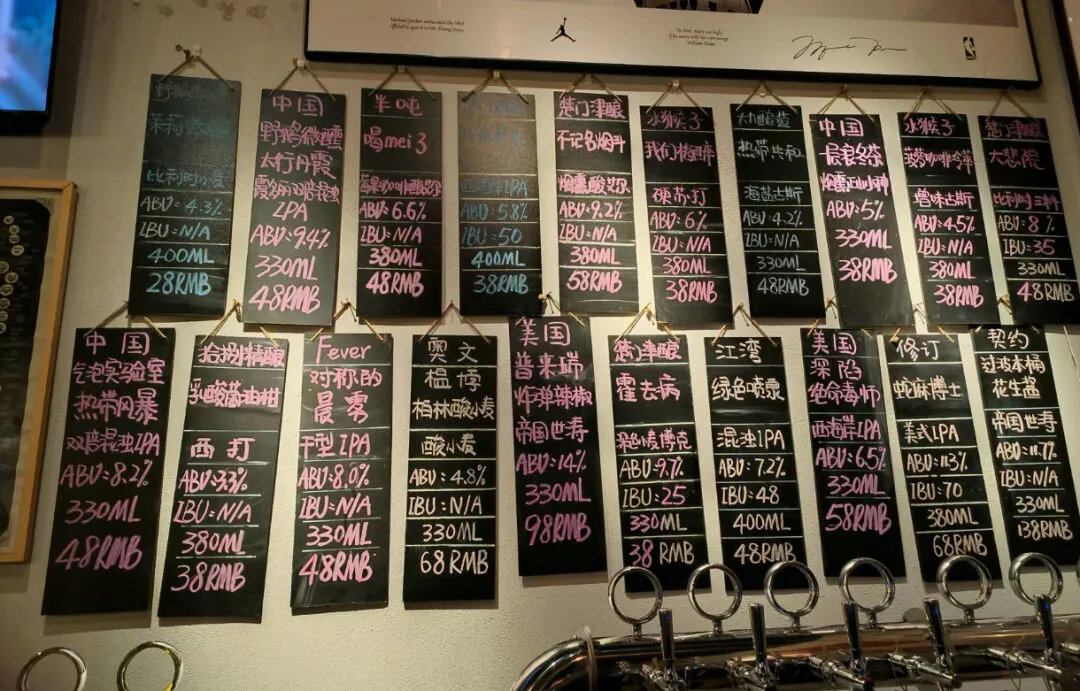 Michael Jordan authorized the NBA
中国
野鹅微醺
太行丹霞
IPA
ABV:9.4%
330ML
48RMB
半吨
喝mei3
ABV:6.6%
IBU:N/A
380ML
48RMB
比利时小麦
ABV:4.3%
IBU:N/A
400ML
28RMB
西海岸IPA
ABV:5.8%
IBU:50
400ML
38RMB
楚门津酿
不记名烟斗
烟熏酸艾尔
ABV:9.2%
IBU:N/A
380ML
58RMB
水猴子
我们梅酒醉
硬苏打
ABV:6%
IBU:N/A
380ML
38RMB
大九酿造
热带共和
海盐古斯
ABV:4.2%
IBU:N/A
330ML
48RMB
中国
ABV:5%
330ML
38RMB
水猴子
曾味古斯
ABV:4.5%
IBU:N/A
380ML
38RMB
楚门津酿
比利时三料
ABV:8%
IBU:35
330ML
48RMB
中国
气泡实验室
热带风暴
双倍混浊IPA
ABV:8.2%
330ML
48RMB
拾捌精酿
乳酸菌油柑
西打
ABV:3.3%
IBU:N/A
380ML
38RMB
Fever
对称的
晨雾
干型IPA
ABV:8.0%
IBU:N/A
330ML
48RMB
奥文
榅博
柏林酸小麦
酸小麦
ABV:4.8%
IBU:N/A
330ML
68RMB
美国
普来瑞
炸弹辣椒
帝国世涛
ABV:14%
330ML
98RMB
楚门津酿
霍去病
ABV:9.7%
IBU:25
330ML
38RMB
江湾
绿色喷泉
混浊IPA
ABV:7.2%
IBU:48
400ML
48RMB
美国
深陷
绝命毒师
西海岸IPA
ABV:6.5%
330ML
58RMB
修订
蛇麻博士
美式IPA
ABV:11.3%
IBU:70
380ML
68RMB
契约
过波本桶
花生酱
帝国世涛
ABV:11.7%
IBU:N/A
330ML
138RMB